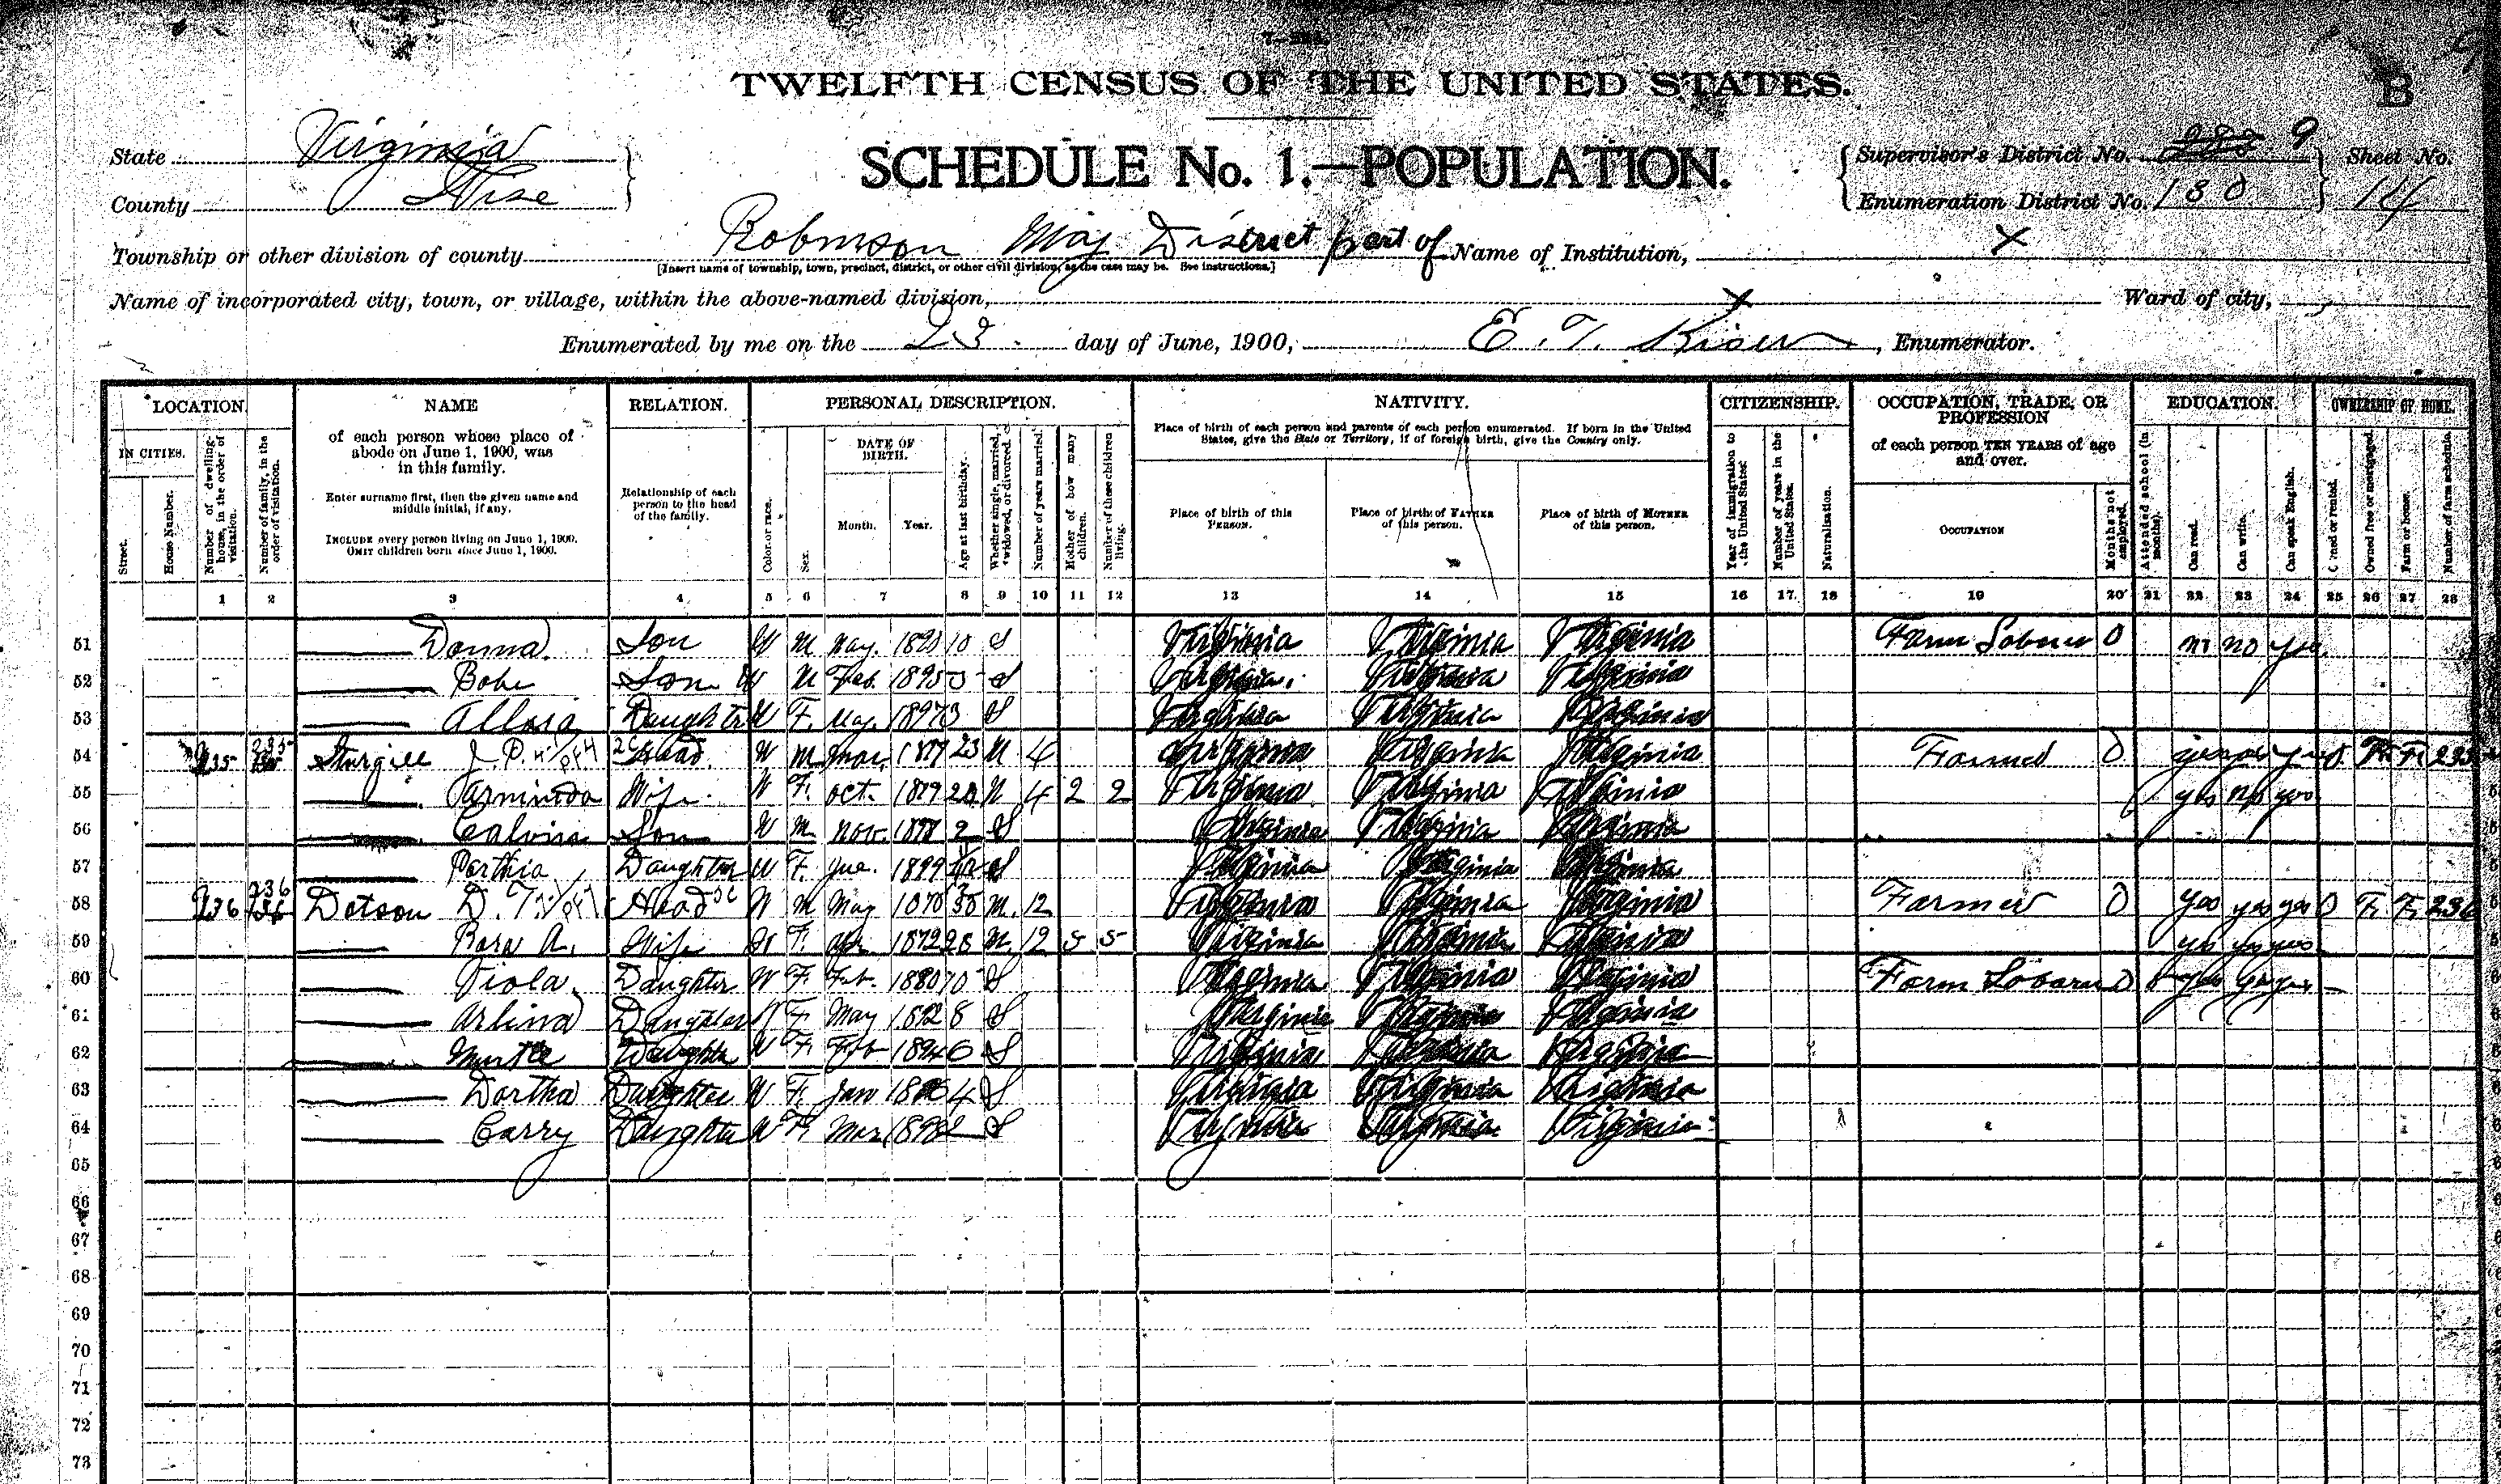 TWELFTH CENSUS OF THE UNITED STATES.
B
State Virginia
SCHEDULE No. 1.—POPULATION.
Supervisor's District No. 9 Sheet No.
County Wise
Enumeration District No. 180 14
Township or other division of county Robinson Maj District part of Name of Institution, X
[Insert name of township, town, precinct, district, or other civil division, as the case may be. See instructions.]
Name of incorporated city, town, or village, within the above-named division, X Ward of city,
Enumerated by me on the 23 day of June, 1900, E. T. Kiser, Enumerator.
LOCATION. NAME RELATION. PERSONAL DESCRIPTION. NATIVITY. CITIZENSHIP. OCCUPATION, TRADE, OR PROFESSION EDUCATION. OWNERSHIP OF HOME.
IN CITIES. Street. House Number. Number of dwelling-house, in the order of visitation. Number of family, in the order of visitation.
of each person whose place of abode on June 1, 1900, was in this family.
Enter surname first, then the given name and middle initial, if any.
INCLUDE every person living on June 1, 1900. OMIT children born since June 1, 1900.
Relationship of each person to the head of the family.
Color or race. Sex. DATE OF BIRTH. Month. Year. Age at last birthday. Whether single, married, widowed, or divorced. Number of years married. Mother of how many children. Number of these children living.
Place of birth of each person and parents of each person enumerated. If born in the United States, give the State or Territory; if of foreign birth, give the Country only.
Place of birth of this PERSON. Place of birth of FATHER of this person. Place of birth of MOTHER of this person.
Year of immigration to the United States. Number of years in the United States. Naturalization.
of each person TEN YEARS of age and over.
OCCUPATION Months not employed.
Attended school (in months). Can read. Can write. Can speak English.
Owned or rented. Owned free or mortgaged. Farm or house. Number of farm schedule.
1 2 3 4 5 6 7 8 9 10 11 12 13 14 15 16 17 18 19 20 21 22 23 24 25 26 27 28
51 Donna Son W M May 10 S Virginia Virginia Virginia Farm 0 no no yes
52 Bobe Son W M Feb. 1895 5 S Virginia Virginia Virginia
53 Daughter W F. May 1897 3 S Virginia Virginia Virginia
54 235 235 Sturgill J. P. Head W M Mar. 1877 23 M 4 Virginia Virginia Virginia Farmer 0 yes yes O F F 235
55 Parminda Wife W F. Oct. 1879 20 M 4 2 2 Virginia Virginia Virginia yes no yes
56 Son W M Nov. 2 S Virginia Virginia Virginia
57 Parthia Daughter W F. 1899 S Virginia Virginia Virginia
58 236 236 Dotson D. T. Head W M May 1870 30 M. 12 Virginia Virginia Virginia Farmer 0 yes yes yes O F. F. 236
59 Rosa A. Wife W F. Apr. 1872 28 M. 12 5 5 Virginia Virginia Virginia yes yes yes
60 Viola Daughter W F. Feb. 10 S Virginia Virginia Virginia Farm yes yes yes
61 Daughter W F. May 1892 8 S Virginia Virginia Virginia
62 Myrtle Daughter W F. Feb 1894 6 S Virginia Virginia Virginia
63 Dortha Daughter W F. Jan 4 S Virginia Virginia Virginia
64 Carry Daughter W F. Mar. 1898 2 S Virginia Virginia Virginia
65
66
67
68
69
70
71
72
73